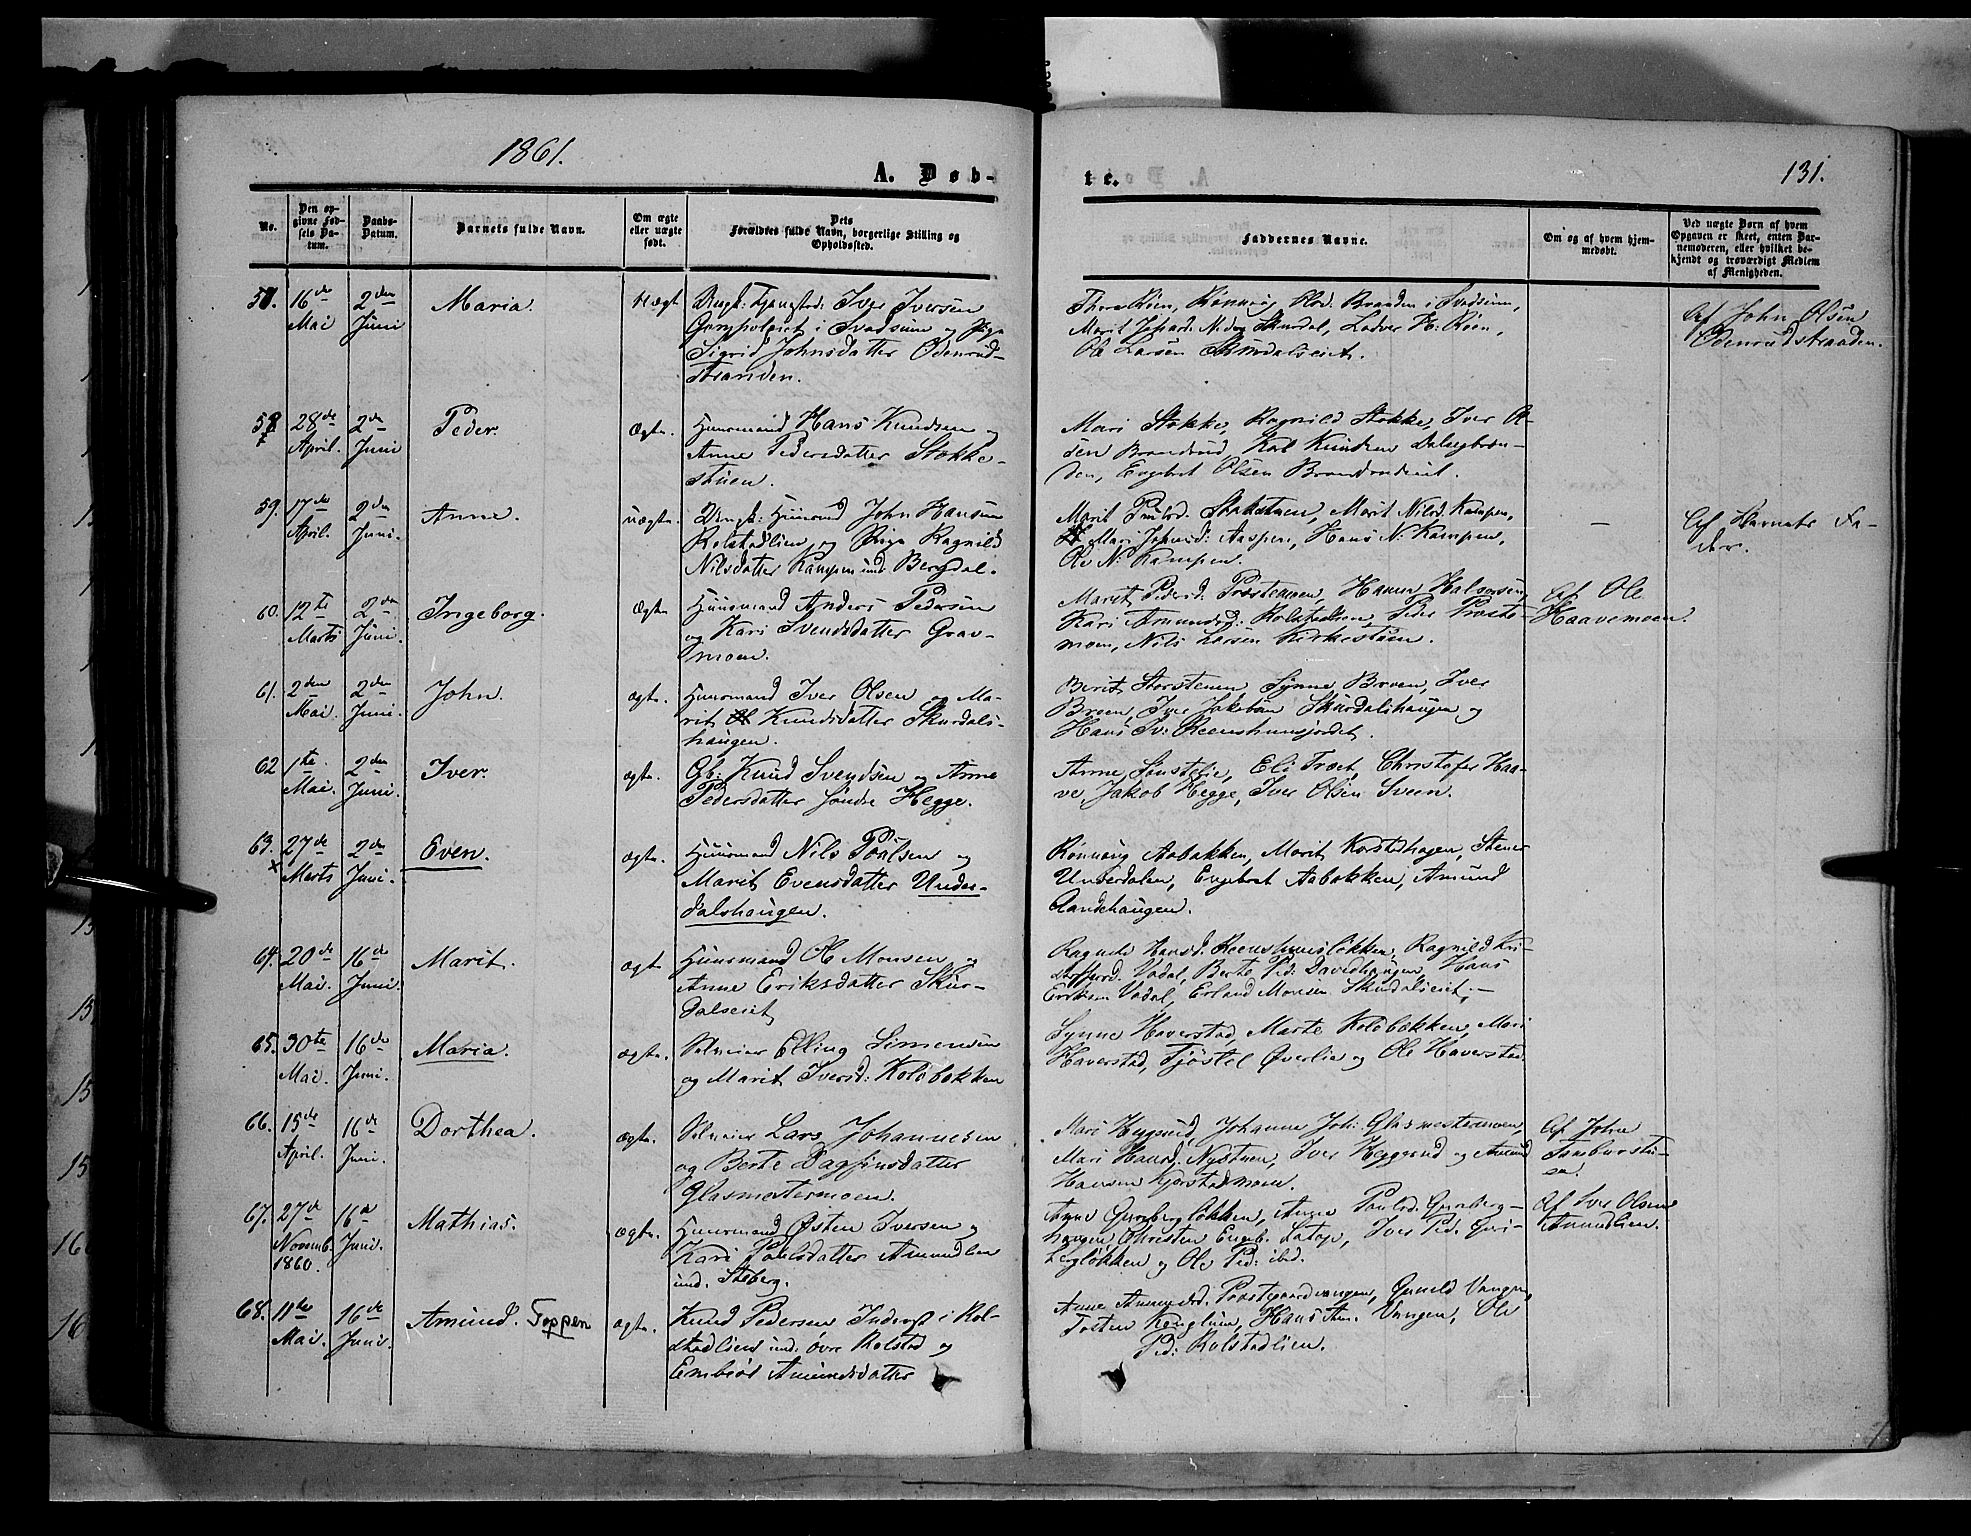 1861.
A. Døb-
te.
131.
No.
Den op-
givne Fød-
sels Da-
tum.
Daabs-
Datum.
Barnets fulde Navn.
Om ægte
eller uægte
født.
Dets
Forældres fulde Navn, borgerlige Stilling og
Opholdssted.
Faddernes Navne.
Om og af hvem hjem-
medøbt.
Ved uægte Børn af hvem
Opgaven er skeet, enten Bar-
nemoderen, eller hvilket be-
kjendt og troværdigt Medlem
af Menigheden.
16de Mai
2den Juni
Maria.
Uægte
Iver Iversen
i Svadsum og Pige
Sigrid Johnsdatter Odenrud-
stranden.
Rønnaug Branden i Svadsum,
Skurdal,
Ole Larsen Skurdalseiet.
Af John Olsen
Odenrudstranden.
58
28de April.
2den Juni
Peder.
Ægte.
Huusmand Hans Knudsen og
Anne Pedersdatter Stokke-
stuen.
Mari Stokke, Ragnild Stokke, Iver Ol-
sen Brandrud, Knudsen
den, Engebret Olsen
59.
17de April.
2den Juni.
Anne.
uægte.
Ungk: Huusmd John Hansen
Kolstadlien og Pige Ragnild
Nilsdatter Kampen und. Bergdal.
Marit Stokstuen, Marit Nilsd. Kampen,
Mari Aaspen, Hans N. Kampen,
Ole N. Kampen.
–
Af Barnets Fa-
der.
60.
12te Marts
2den Juni.
Ingeborg.
Ægte.
Huusmand Anders Pedersen
og Kari Svendsdatter Grav-
moen.
Marit Pedersd. Præstemoen, Halvorsen,
Kari Amundsd: Kolstadlien, Peder Præste-
moen, Nils Larsen Kirkestuen.
Af Ole
Haavemoen.
61.
2den Mai.
2den Juni.
John.
ægte.
Huusmand Iver Olsen og Ma-
rit Knudsdatter Skurdals-
haugen.
Berit Storstenen, Synne Broen, Iver
Broen, Iver Jakobsen Skurdalshaugen og
Hans Iv:
62
1te Mai.
2den Juni.
Iver.
ægte.
Gb: Knud Svendsen og Anne
Pedersdatter søndre Hegge.
Anne Sønstelie, Eli Træet, Christofer Haa-
ve, Jakob Hegge, Iver Olsen Sveen.
63.
×
27de Marts
2den Juni.
Even.
ægte.
Huusmand Nils Poulsen og
Marit Evensdatter Under-
dalshaugen.
Rønnaug Aabakken, Marit Kolstadhagen, Stener
Underdalen, Engebret Aabakken, Amund
Aandehaugen.
64.
20de Mai.
16de Juni.
Marit.
ægte
Huusmand Ole Monsen og
Anne Eriksdatter Skur-
dalseiet
Ragnild Hansd. Ragnild Kri-
stoffersd. Vadal, Berte Ped: Davidhaugen, Hans
Eriksen Vadal, Erland Monsen Skurdalseiet.
65.
30te Mai.
16de Juni.
Maria.
ægte.
Selveier Elling Simensen
og Marit Iversd: Kolobækken
Synne Haverstad, Marte Kolobækken, Mari
Haverstad, Tjøstel Øverlie og Ole Haverstad
66.
15de April.
16de Juni.
Dorthea.
ægte.
Selveier Lars Johannesen
og Berte Dagfinsdatter
Glasmestermoen.
Mari Heggerud, Johanne Joh: Glasmestermoen,
Mari Hansd: Nystuen, Iver Heggerud og Amund
Hansen Kjorstadmoen.
Af John
Tamburstu-
en.
67.
27de Novemb. 1860.
16de Juni.
Mathias.
ægte.
Huusmand Østen Iversen og
Kari Poulsdatter Amundlien
und. Steberg.
Anne Anne Poulsd.
haugen, Christen Engeb. Iver Ped:
og Ole Ped: ibid.
Af Iver Olsen
Amundlien.
68.
11te Mai.
16de Juni.
Amund. Toppen
ægte.
Knud Pedersen Inderst i Kol-
stadlien und. øvre Kolstad og
Embiør Amundsdatter
Anne Amundsd. Prestgaardsvangen, Gunild Vangen,
Tosten Hans Am. Vangen, Ole
Ped: Kolstadlien.